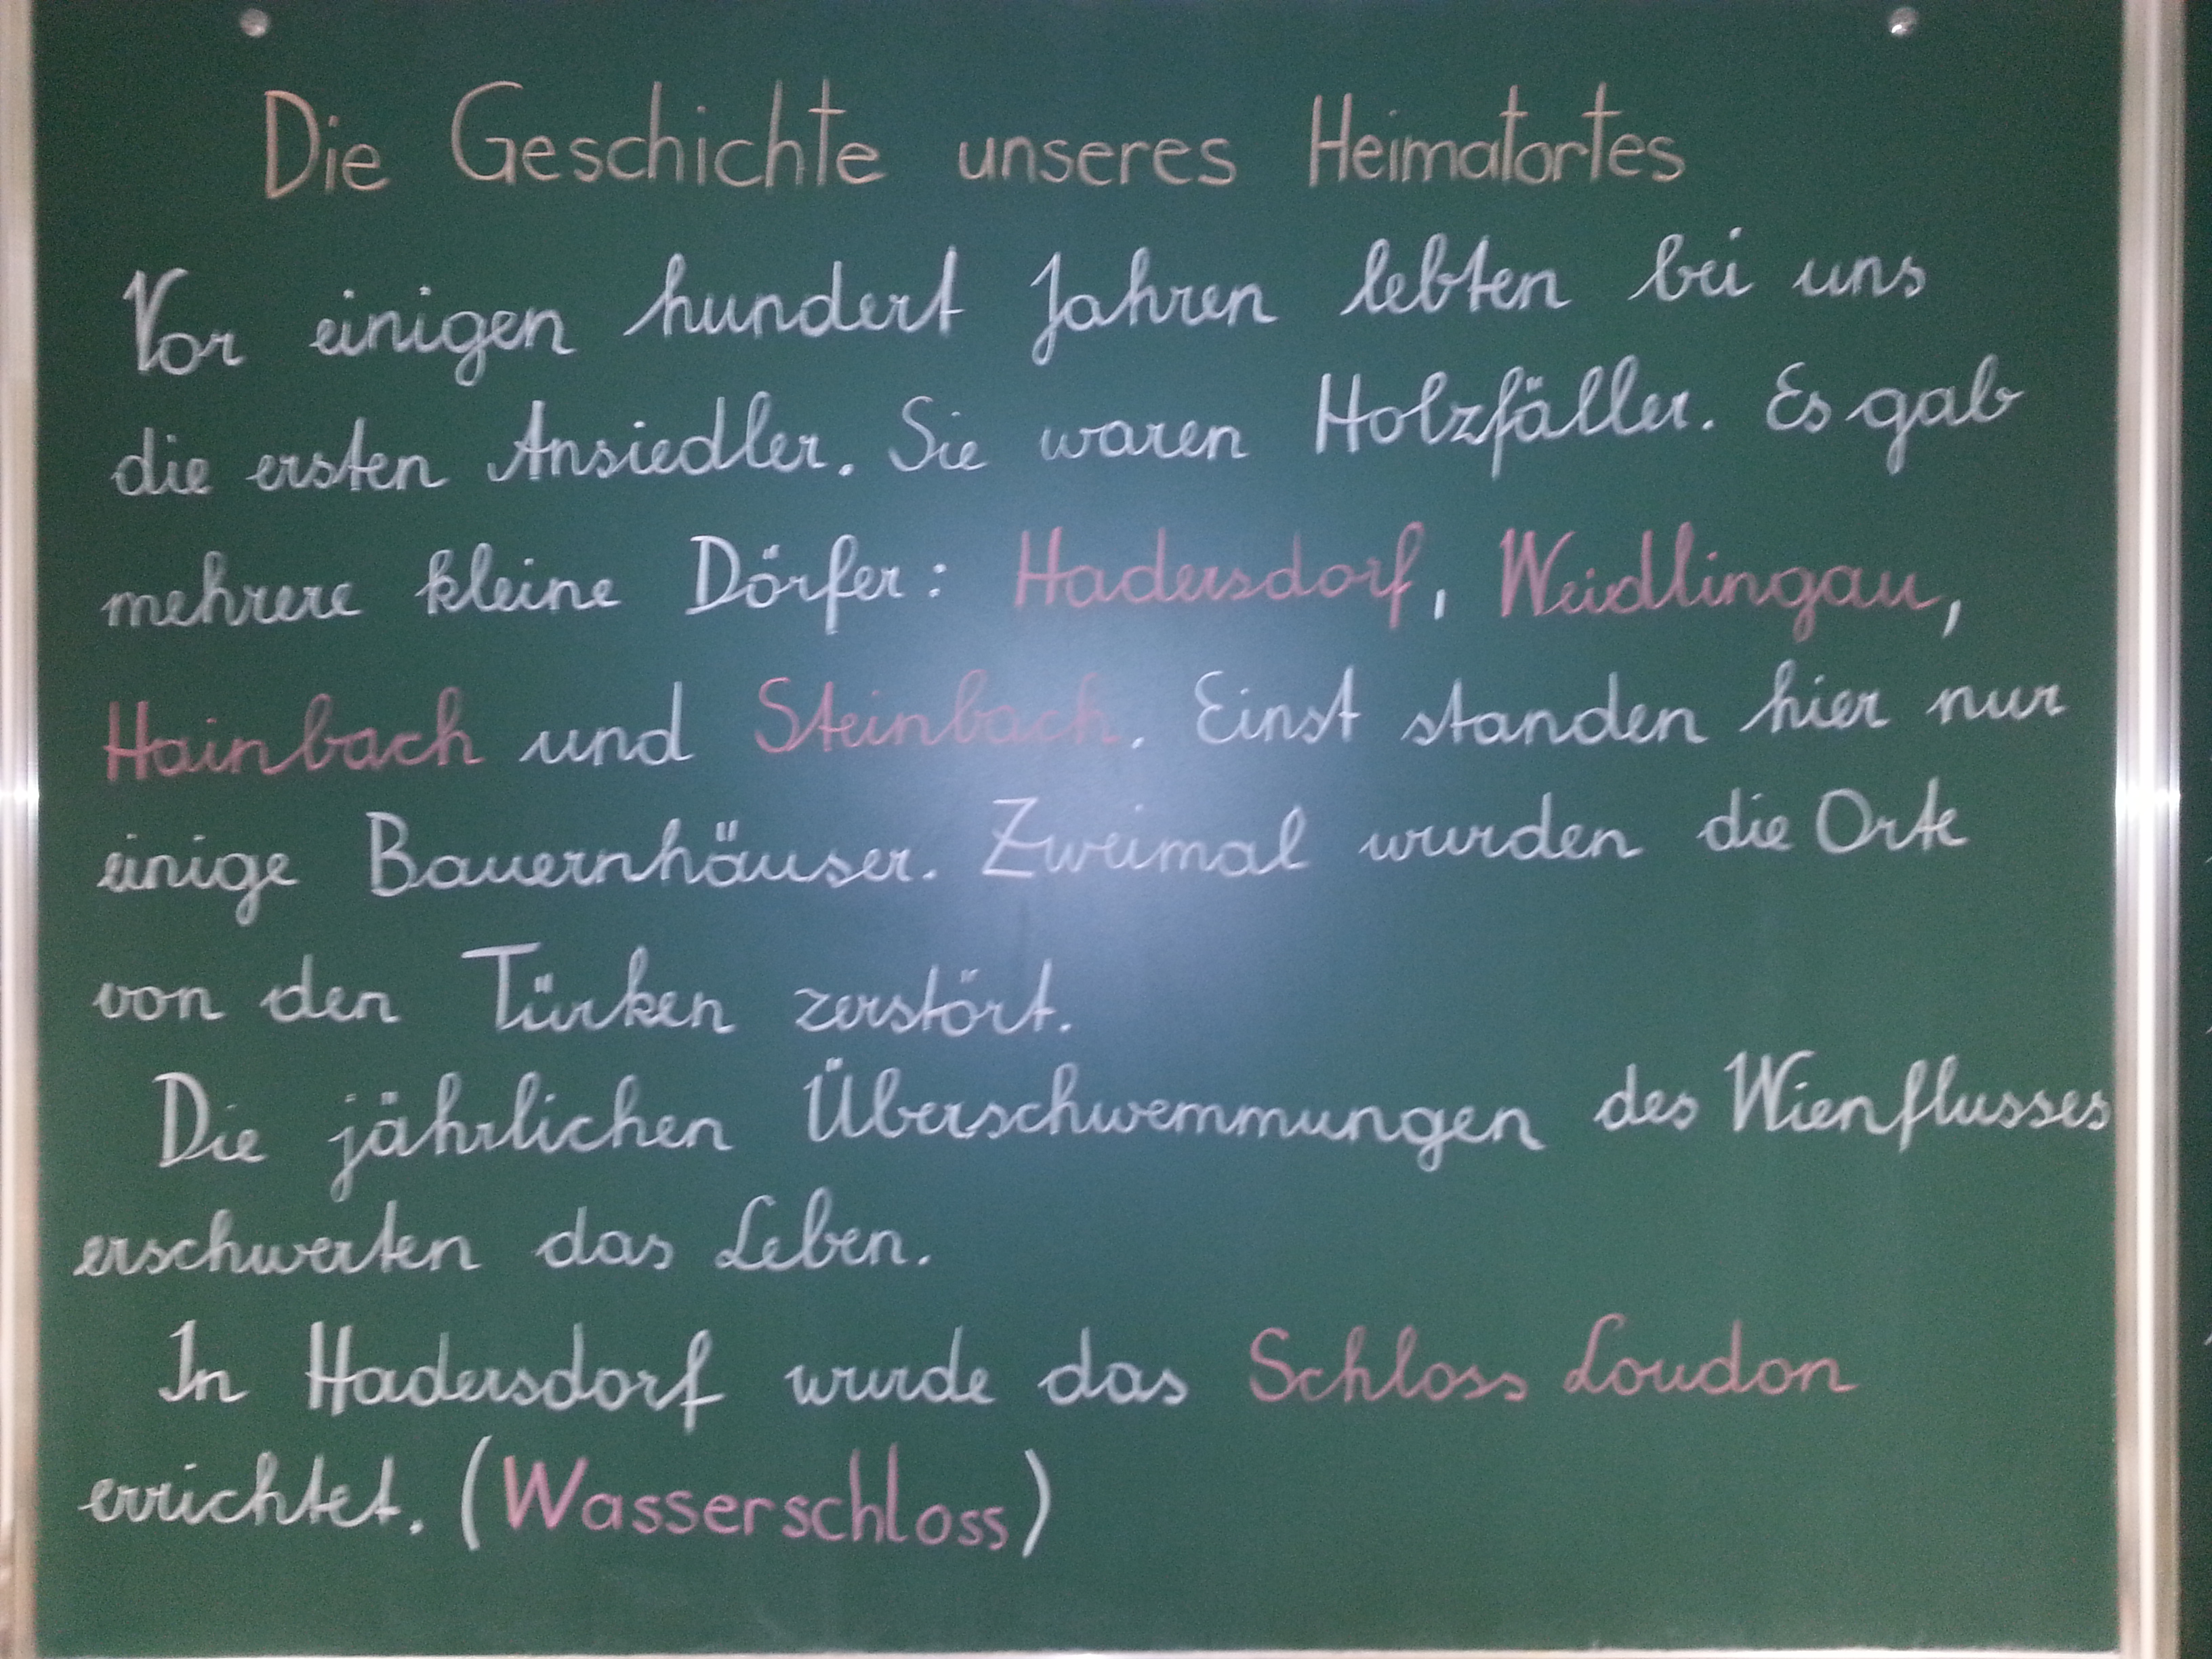 Die Geschichte unseres Heimatortes
Vor einigen hundert Jahren lebten bei uns
die ersten Ansiedler. Sie waren Holzfäller. Es gab
mehrere kleine Dörfer: Hadersdorf, Weidlingau,
Hainbach und Steinbach. Einst standen hier nur
einige Bauernhäuser. Zweimal wurden die Orte
von den Türken zerstört.
Die jährlichen Überschwemmungen des Wienflusses
erschwerten das Leben.
In Hadersdorf wurde das Schloss Loudon
errichtet. (Wasserschloss)